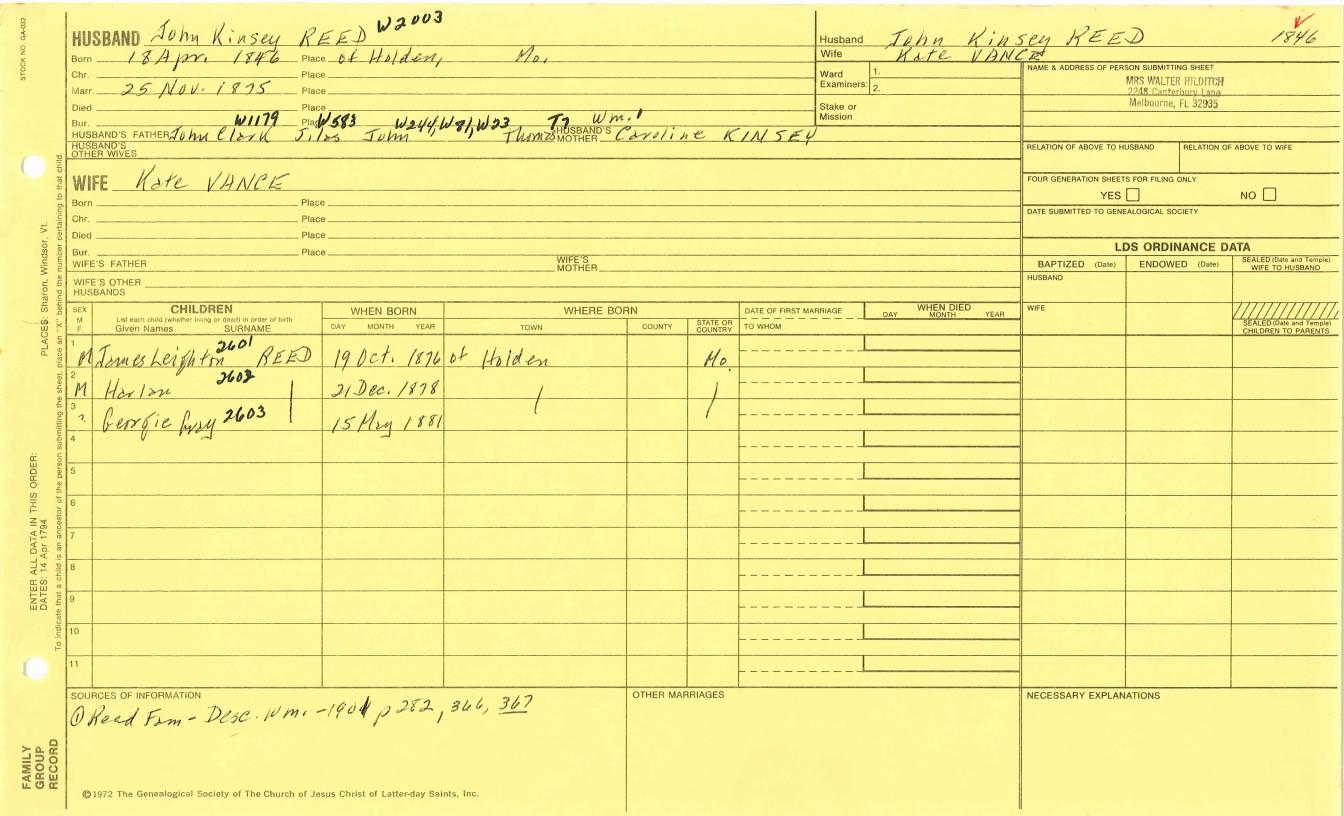 STOCK NO. GA-032
W2003
HUSBAND John Kinsey REED
Born 18 Apr. 1846 Place of Holden, Mo.
Chr. Place
Marr. 25 Nov. 1875 Place
Died Place
Bur. Place
W1179 W583 W244, W81, W23 T7 Wm.1
HUSBAND'S FATHER John Clark Silas John Thomas HUSBAND'S MOTHER Caroline KINSEY
HUSBAND'S OTHER WIVES
WIFE Kate VANCE
Born Place
Chr. Place
Died Place
Bur. Place
WIFE'S FATHER WIFE'S MOTHER
WIFE'S OTHER HUSBANDS
Husband John Kinsey REED 1846
Wife Kate VANCE
Ward Examiners: 1. 2.
Stake or Mission
NAME & ADDRESS OF PERSON SUBMITTING SHEET
MRS WALTER HILDITCH
2248 Canterbury Lane
Melbourne, FL 32935
RELATION OF ABOVE TO HUSBAND RELATION OF ABOVE TO WIFE
FOUR GENERATION SHEETS FOR FILING ONLY
YES NO
DATE SUBMITTED TO GENEALOGICAL SOCIETY
LDS ORDINANCE DATA
BAPTIZED (Date) ENDOWED (Date) SEALED (Date and Temple) WIFE TO HUSBAND
HUSBAND
WIFE
SEALED (Date and Temple) CHILDREN TO PARENTS
SEX M F
CHILDREN
List each child (whether living or dead) in order of birth
Given Names SURNAME
WHEN BORN
DAY MONTH YEAR
WHERE BORN
TOWN COUNTY STATE OR COUNTRY
DATE OF FIRST MARRIAGE
TO WHOM
WHEN DIED
DAY MONTH YEAR
1 M James Leighton 2601 REED 19 Oct. 1876 of Holden Mo.
2 M Harlan 2602 21 Dec. 1878
3 ? Georgie Gray 2603 15 May 1881
4
5
6
7
8
9
10
11
SOURCES OF INFORMATION
① Reed Fam - Desc. Wm. - 1901 p 282, 366, 367
OTHER MARRIAGES
NECESSARY EXPLANATIONS
©1972 The Genealogical Society of The Church of Jesus Christ of Latter-day Saints, Inc.
PLACES: Sharon, Windsor, Vt.
ENTER ALL DATA IN THIS ORDER:
DATES: 14 Apr 1794
To indicate that a child is an ancestor of the person submitting the sheet, place an "X" behind the number pertaining to that child.
FAMILY GROUP RECORD